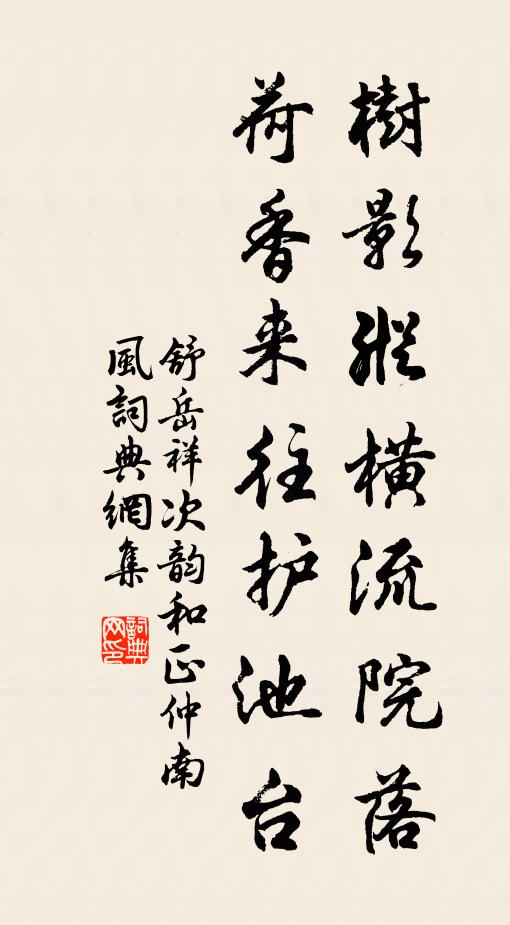 樹影縱橫流院落
荷香来往护池台
舒岳祥次韵和正仲南
風詞典網集
詞典
网印